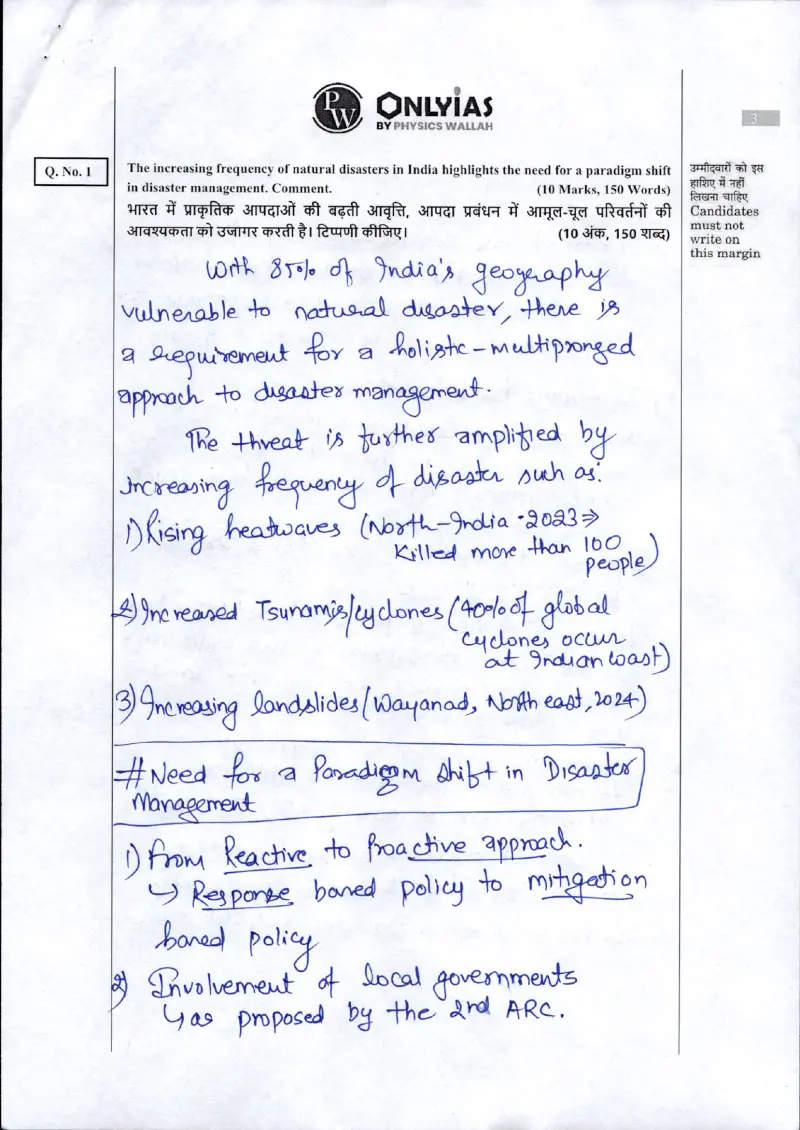 PW ONLYIAS
BY PHYSICS WALLAH
3
Q. No. 1
The increasing frequency of natural disasters in India highlights the need for a paradigm shift
in disaster management. Comment. (10 Marks, 150 Words)
भारत में प्राकृतिक आपदाओं की बढ़ती आवृत्ति, आपदा प्रबंधन में आमूल-चूल परिवर्तनों की
आवश्यकता को उजागर करती है। टिप्पणी कीजिए। (10 अंक, 150 शब्द)
उम्मीदवारों को इस
हाशिए में नहीं
लिखना चाहिए
Candidates
must not
write on
this margin
With 85% of India's geography
vulnerable to natural disaster, there is
a requirement for a holistic-multipronged
approach to disaster management.
The threat is further amplified by
increasing frequency of disaster such as:
1) Rising heatwaves (North-India - 2023 ⇒
Killed more than 100
people)
2) Increased Tsunamis/cyclones (40% of global
cyclones occur
at Indian Coast)
3) Increasing landslides (Wayanad, North east, 2024)
# Need for a Paradigm shift in Disaster
Management
1) From Reactive to Proactive approach.
↳ Response based policy to mitigation
based policy
2) Involvement of local governments
↳ as proposed by the 2nd ARC.